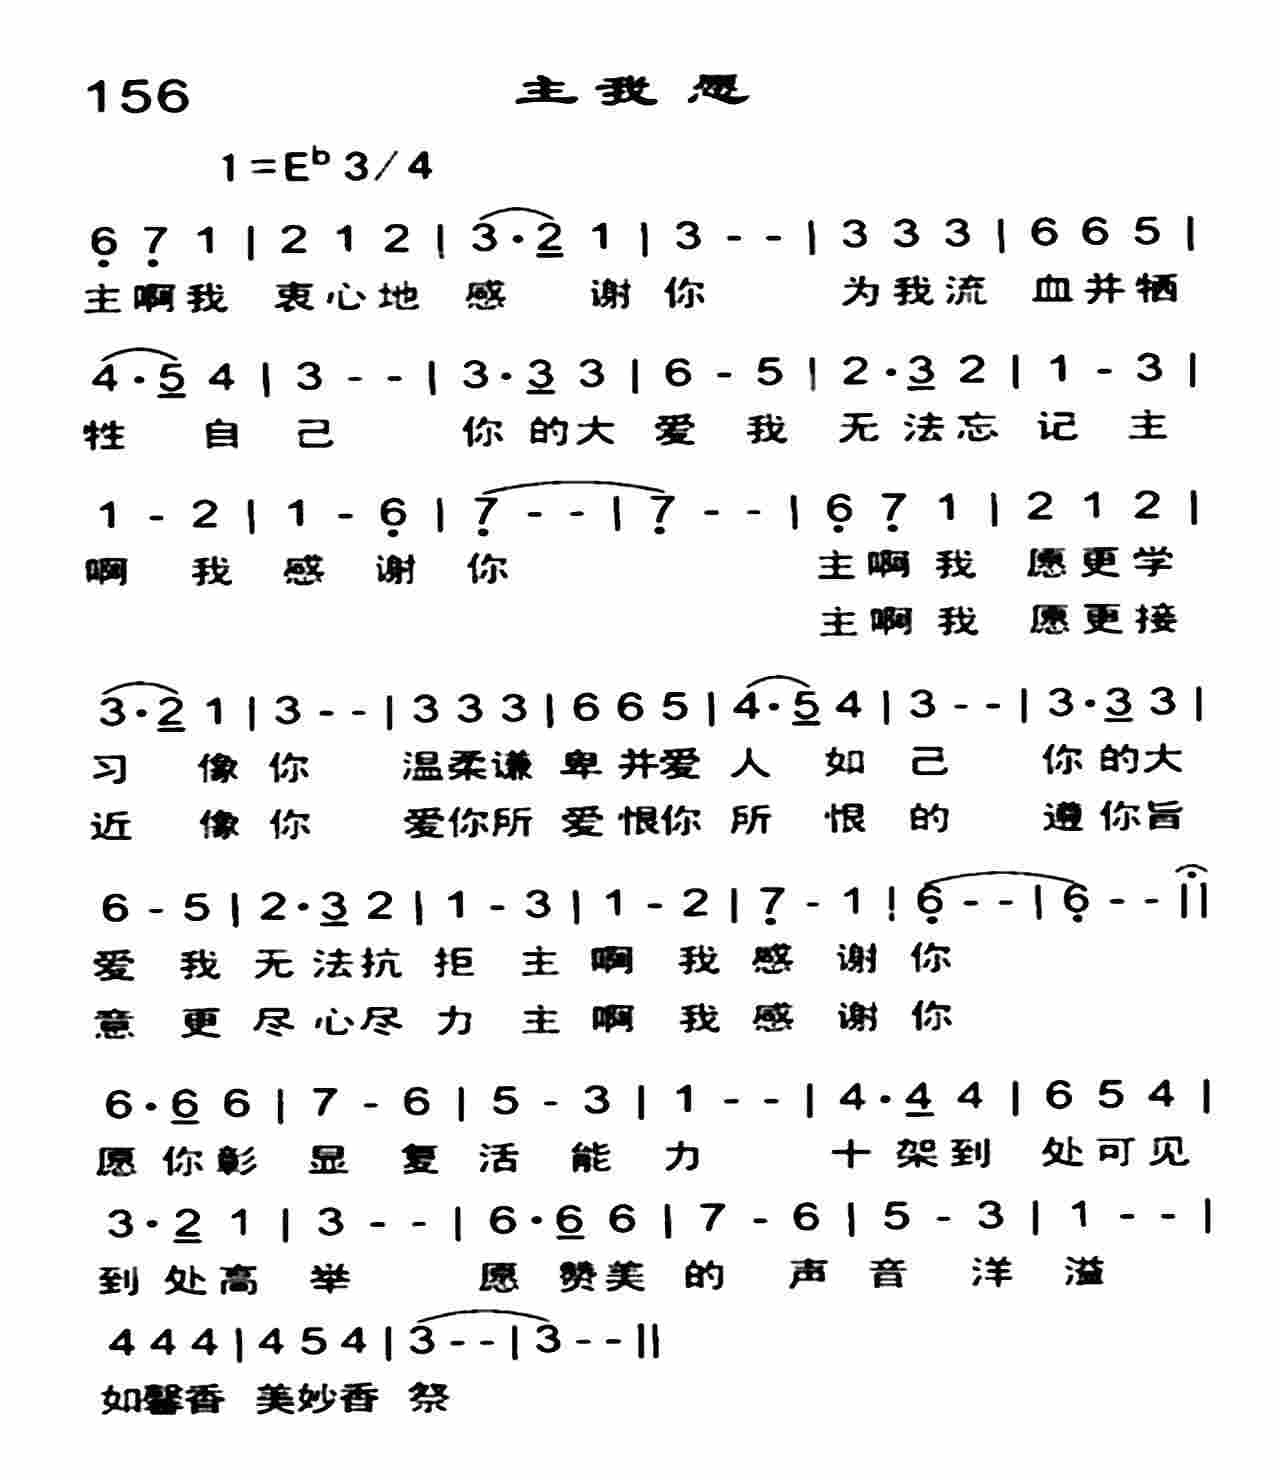 156 主我愿
1=E♭ 3/4
6̣ 7̣ 1 | 2 1 2 | 3·2 1 | 3 - - | 3 3 3 | 6 6 5 |
主啊我 衷心地 感 谢 你 为我流 血并牺
4·5 4 | 3 - - | 3·3 3 | 6 - 5 | 2·3 2 | 1 - 3 |
牲 自 己 你 的大 爱 我 无 法忘 记 主
1 - 2 | 1 - 6̣ | 7̣ - - | 7̣ - - | 6̣ 7̣ 1 | 2 1 2 |
啊 我 感 谢 你 主啊我 愿更学
主啊我 愿更接
3·2 1 | 3 - - | 3 3 3 | 6 6 5 | 4·5 4 | 3 - - | 3·3 3 |
习 像 你 温柔谦 卑并爱 人 如 己 你 的大
近 像 你 爱你所 爱恨你 所 恨 的 遵 你旨
6 - 5 | 2·3 2 | 1 - 3 | 1 - 2 | 7̣ - 1 | 6̣ - - | 6̣ - - ||
爱 我 无 法抗 拒 主 啊 我 感 谢 你
意 更 尽 心尽 力 主 啊 我 感 谢 你
6·6 6 | 7 - 6 | 5 - 3 | 1 - - | 4·4 4 | 6 5 4 |
愿 你彰 显 复 活 能 力 十 架到 处可见
3·2 1 | 3 - - | 6·6 6 | 7 - 6 | 5 - 3 | 1 - - |
到 处高 举 愿 赞美 的 声 音 洋 溢
4 4 4 | 4 5 4 | 3 - - | 3 - - ||
如馨香 美妙香 祭